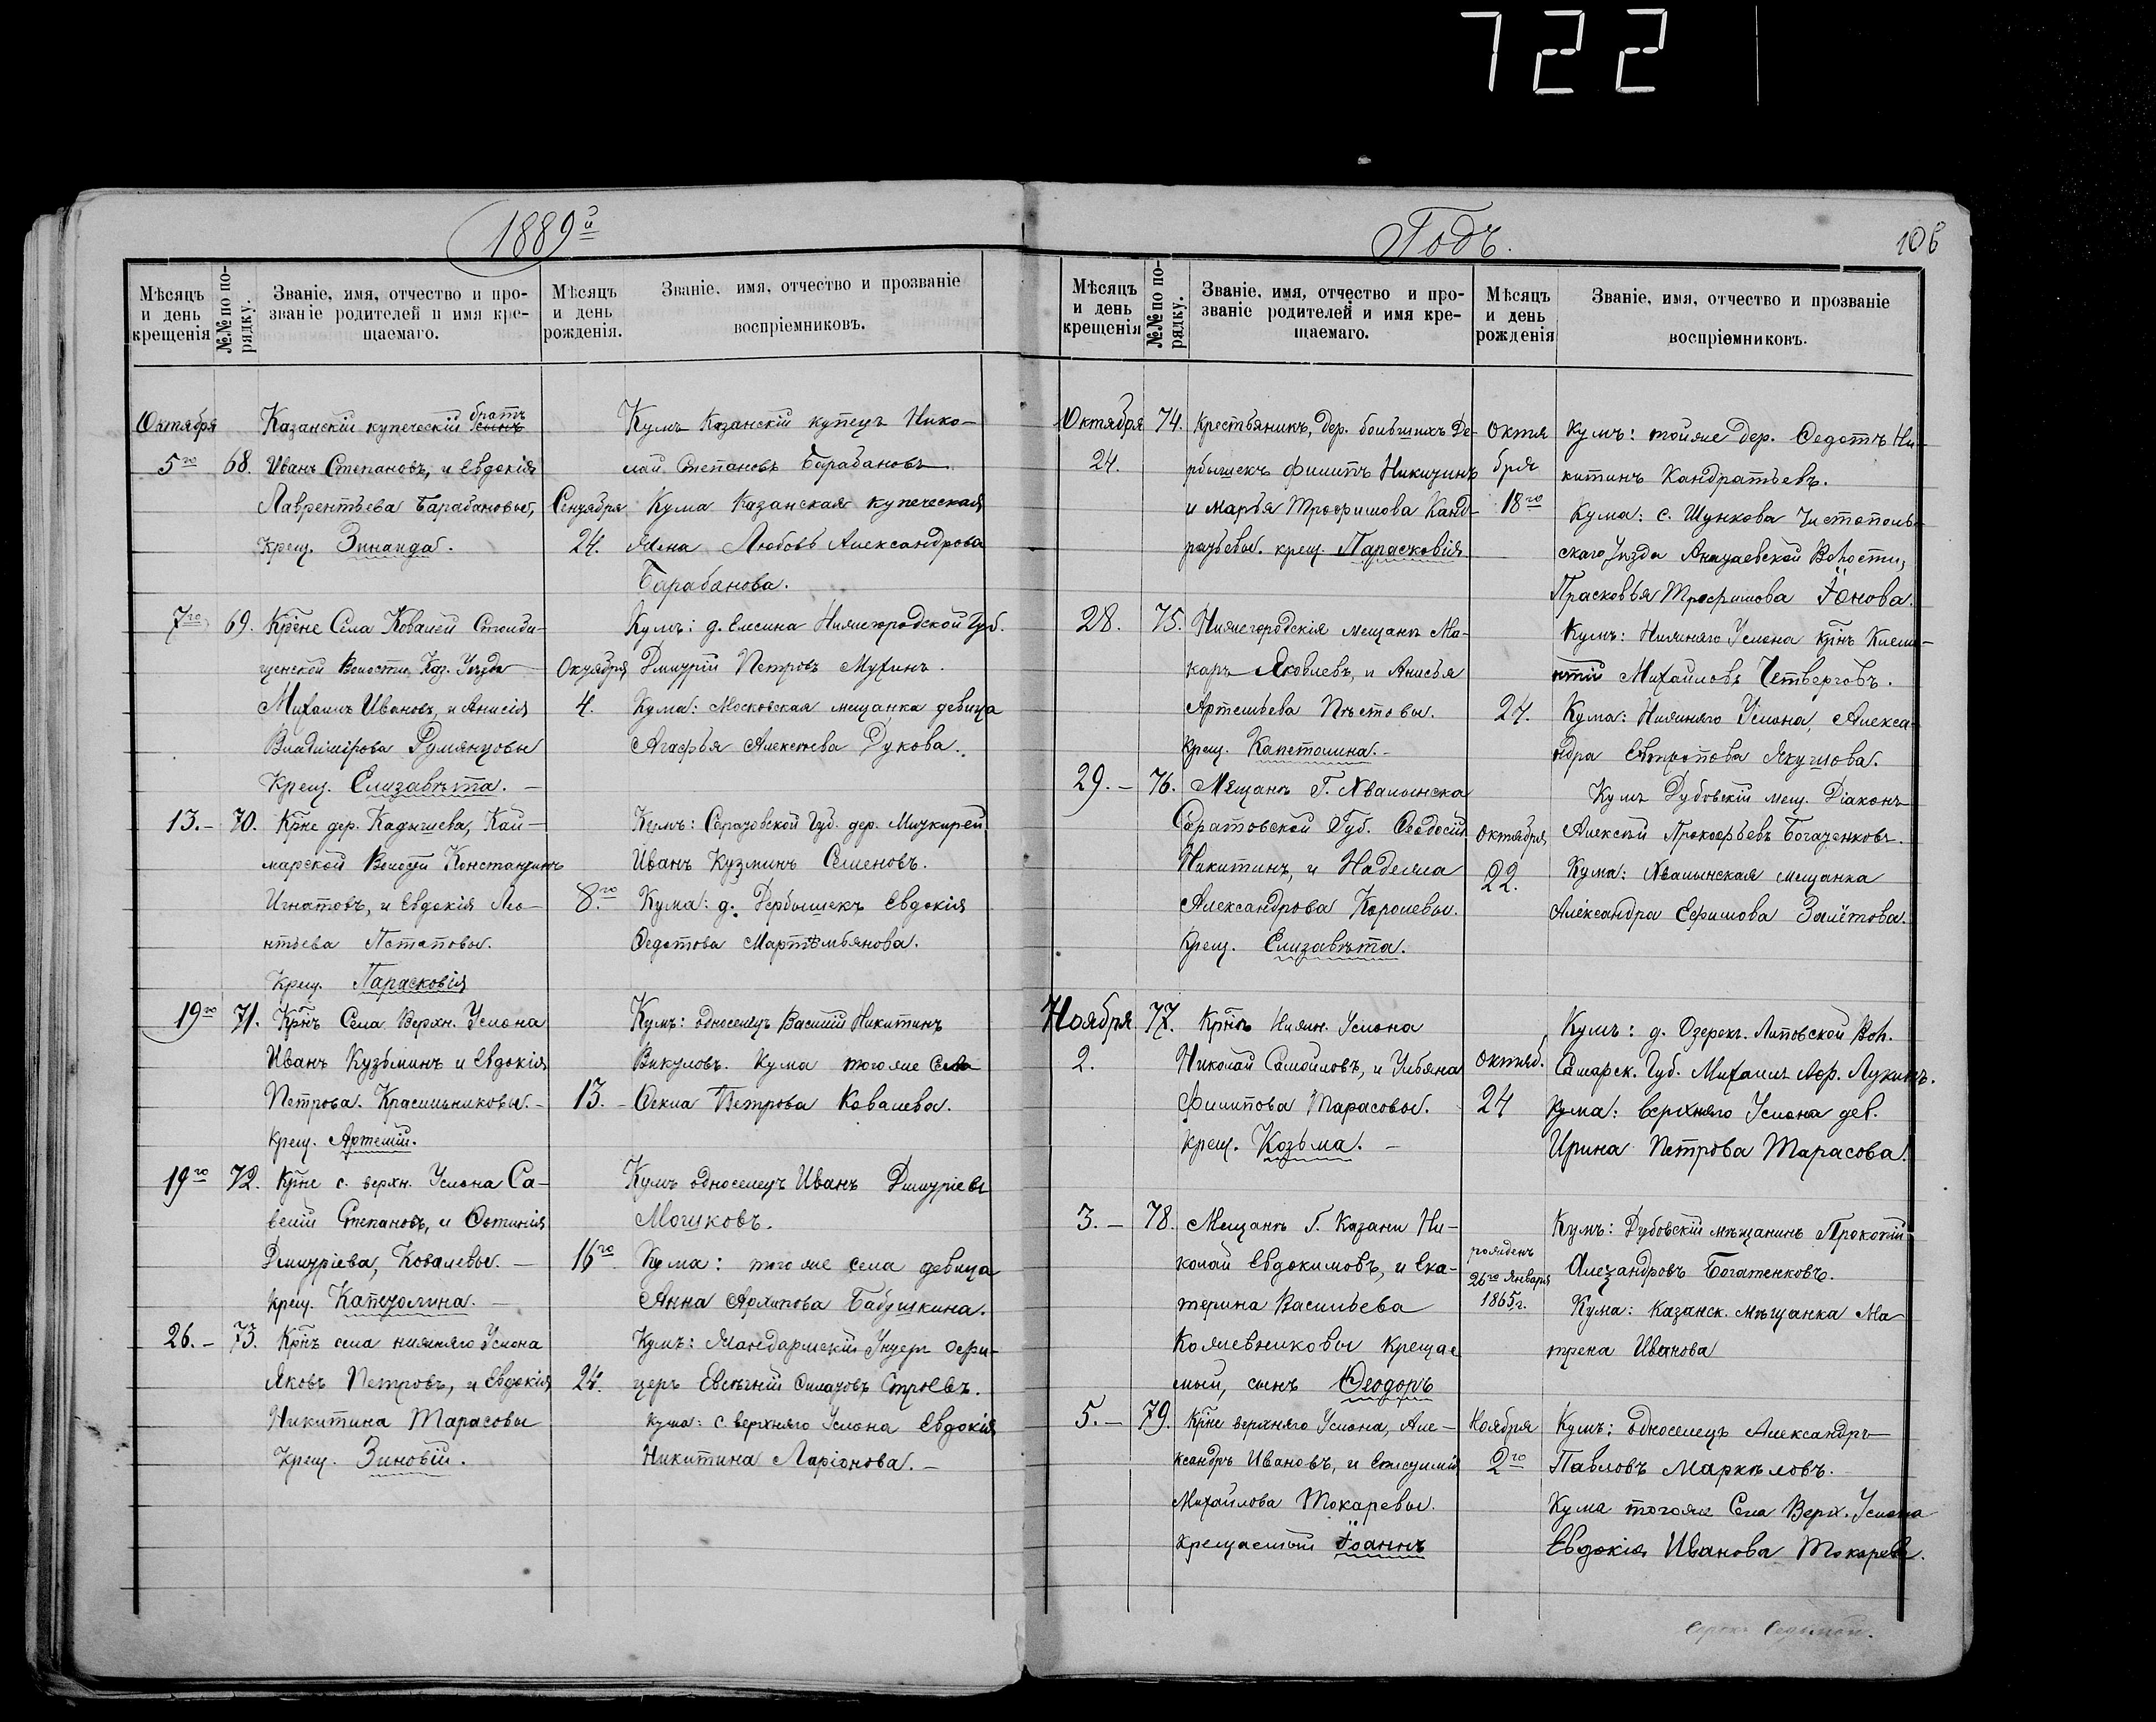 722
1889й
Мѣсяцъ и день крещенія
№№ по порядку.
Званіе, имя, отчество и прозваніе родителей и имя крещаемаго.
Мѣсяцъ и день рожденія.
Званіе, имя, отчество и прозваніе воспріемниковъ.
Октября
5го 68.
Казанскій купеческій братъ сынъ
Иванъ Степановъ, и Евдокія
Лаврентьева Барабановы,
крещ. Зинаида.
Сентября
24.
Кумъ Казанскій купецъ Нико-
лай Степановъ Барабановъ
Кума Казанская купеческая
жена Любовь Александрова
Барабанова.
7го 69.
Крне Села Ковалей
щенской Волости Каз. Уѣзда
Михаилъ Ивановъ, и Анисія
Владимірова Румянцовы
Крещ. Елизавѣта.
Октября
4.
Кумъ: д. Елисина Нижегородской Губ.
Дмитрій Петровъ Мухинъ.
Кума: Московская мещанка девица
Агафья Алексѣева Рукова.
13.- 70.
Крне дер. Кадышева, Кай-
марской Волости Константинъ
Игнатовъ, и Евдокія Лео-
нтьева Потаповы.
Крещ. Парасковія
8го
Кумъ: Саратовской Губ. дер. Мичкирей
Иванъ Кузминъ Семеновъ.
Кума: д. Дербышекъ Евдокія
Федотова Мартемьянова.
19го 71.
Крнъ Села Верхн. Услона
Иванъ Кузьминъ и Евдокія
Петрова. Красильниковы.-
крещ. Артемій.
13.-
Кумъ: односелецъ Василій Никитинъ
Викуловъ. Кума тогоже Села
Фекла Петрова Ковалева.
19го 72.
Крне с. верхн. Услона Са-
велій Степановъ, и Фотинія
Дмитріева, Ковалевы. -
крещ. Капитолина. -
16го
Кумъ односелецъ Иванъ Дмитріевъ
Мошковъ.
Кума: тогоже села девица
Анна Архипова Бабушкина.
26.- 73.
Крнъ села нижняго Услона
Яковъ Петровъ, и Евдокія
Никитина Тарасовы
Крещ. Зиновій.
24.
Кумъ: Жандармскій Унтеръ офи-
церъ Евсѣвій Филатовъ Строевъ.
кума: с. верхняго Услона Евдокія
Никитина Ларіонова. -
Годъ.
106
Мѣсяцъ и день крещенія
№№ по порядку.
Званіе, имя, отчество и прозваніе родителей и имя крещаемаго.
Мѣсяцъ и день рожденія
Званіе, имя, отчество и прозваніе воспріемниковъ.
Октября 74.
24.
Крестьянинъ, дер. большихъ Де-
рбышекъ Филипъ Никитинъ
и Марья Трофимова Канд-
ратьевы. крещ. Парасковія
октя
бря
18го
Кумъ: тойже дер. Федотъ Ни-
китинъ Кандратьевъ.
Кума: с. Шункова Чистополь-
скаго Уѣзда Волости,
Прасковья Трофимова Іонова.
28. 75.
Нижегородскія мещане Ма-
каръ Яковлевъ, и Анисья
Артемьева Пѣстовы.
крещ. Капетолина.-
27.
Кумъ: Нижняго Услона Крнъ Клеме-
нтій Михайловъ Четверговъ.
Кума: Нижняго Услона, Алекса-
ндра Евтропова Якушова.
29.- 76.
Мещане Г. Хвалынска
Саратовской Губ. Феодосій
Никитинъ, и Надежда
Александрова Королевы.
крещ. Елизавѣта.
октября
22.
Кумъ Дубовскій мещ. Діаконъ
Алексѣй Прокофьевъ Богатенковъ.
Кума: Хвалынская мещанка
Александра Ефимова Залётова.
Ноября 77.
2.
Крне Нижн. Услона
Николай Самойловъ, и Ульяна
Филипова Тарасовы.
крещ. Козьма. -
октяб.
24
Кумъ: д. Озерекъ. Липовской Вол.
Самарск. Губ. Михаилъ Лукинъ.
Кума: верхняго Услона дев.
Ирина Петрова Тарасова.
3.- 78.
Мещане Г. Казани Ни-
колай Евдокимовъ, и Ека-
терина Васильева
Кожевниковы крещае
мый, сынъ Феодоръ
рожденъ
26го Января
1865г.
Кумъ: Дубовскій мѣщанинъ Прокопій
Алезандровъ Богатенковъ.
Кума: казанск. мѣщанка Ма
трена Иванова
5.- 79.
Крне верхняго Услона, Але-
ксандръ Ивановъ, и
Михайлова Токаревы.
крещаемый Іоаннъ
Ноября
2го
Кумъ: односелецъ Александръ
Павловъ Маркеловъ.
Кума тогоже Села Верх. Услона
Евдокія Иванова Токарева.